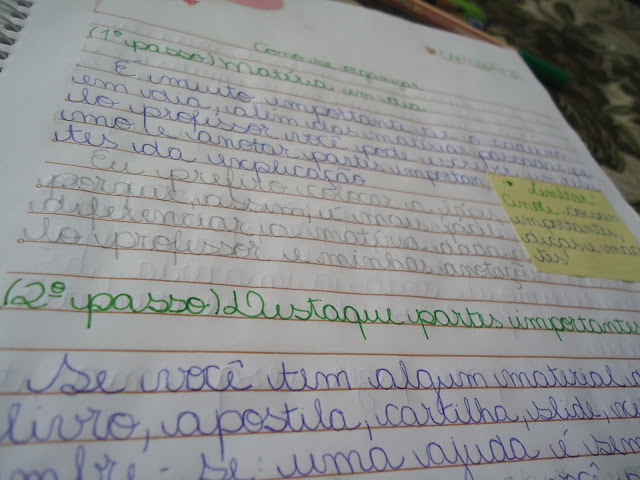 Como se organizar
(1º passo) Matéria em dia
É muito importante ter o caderno
em dia, além das matérias passadas pe
lo professor você pode escrever um re
sumo e anotar partes importan
tes da explicação
Eu prefiro colocar a lápis
porque assim, é mais fácil
diferenciar a matéria dada pe
lo professor e minhas anotaçõ
Lembrar!
coisas
importantes,
dicas e
(2º passo) Destaque partes importantes
Se você tem algum material
livro, apostila, cartilha, slide,
se uma ajuda é sem